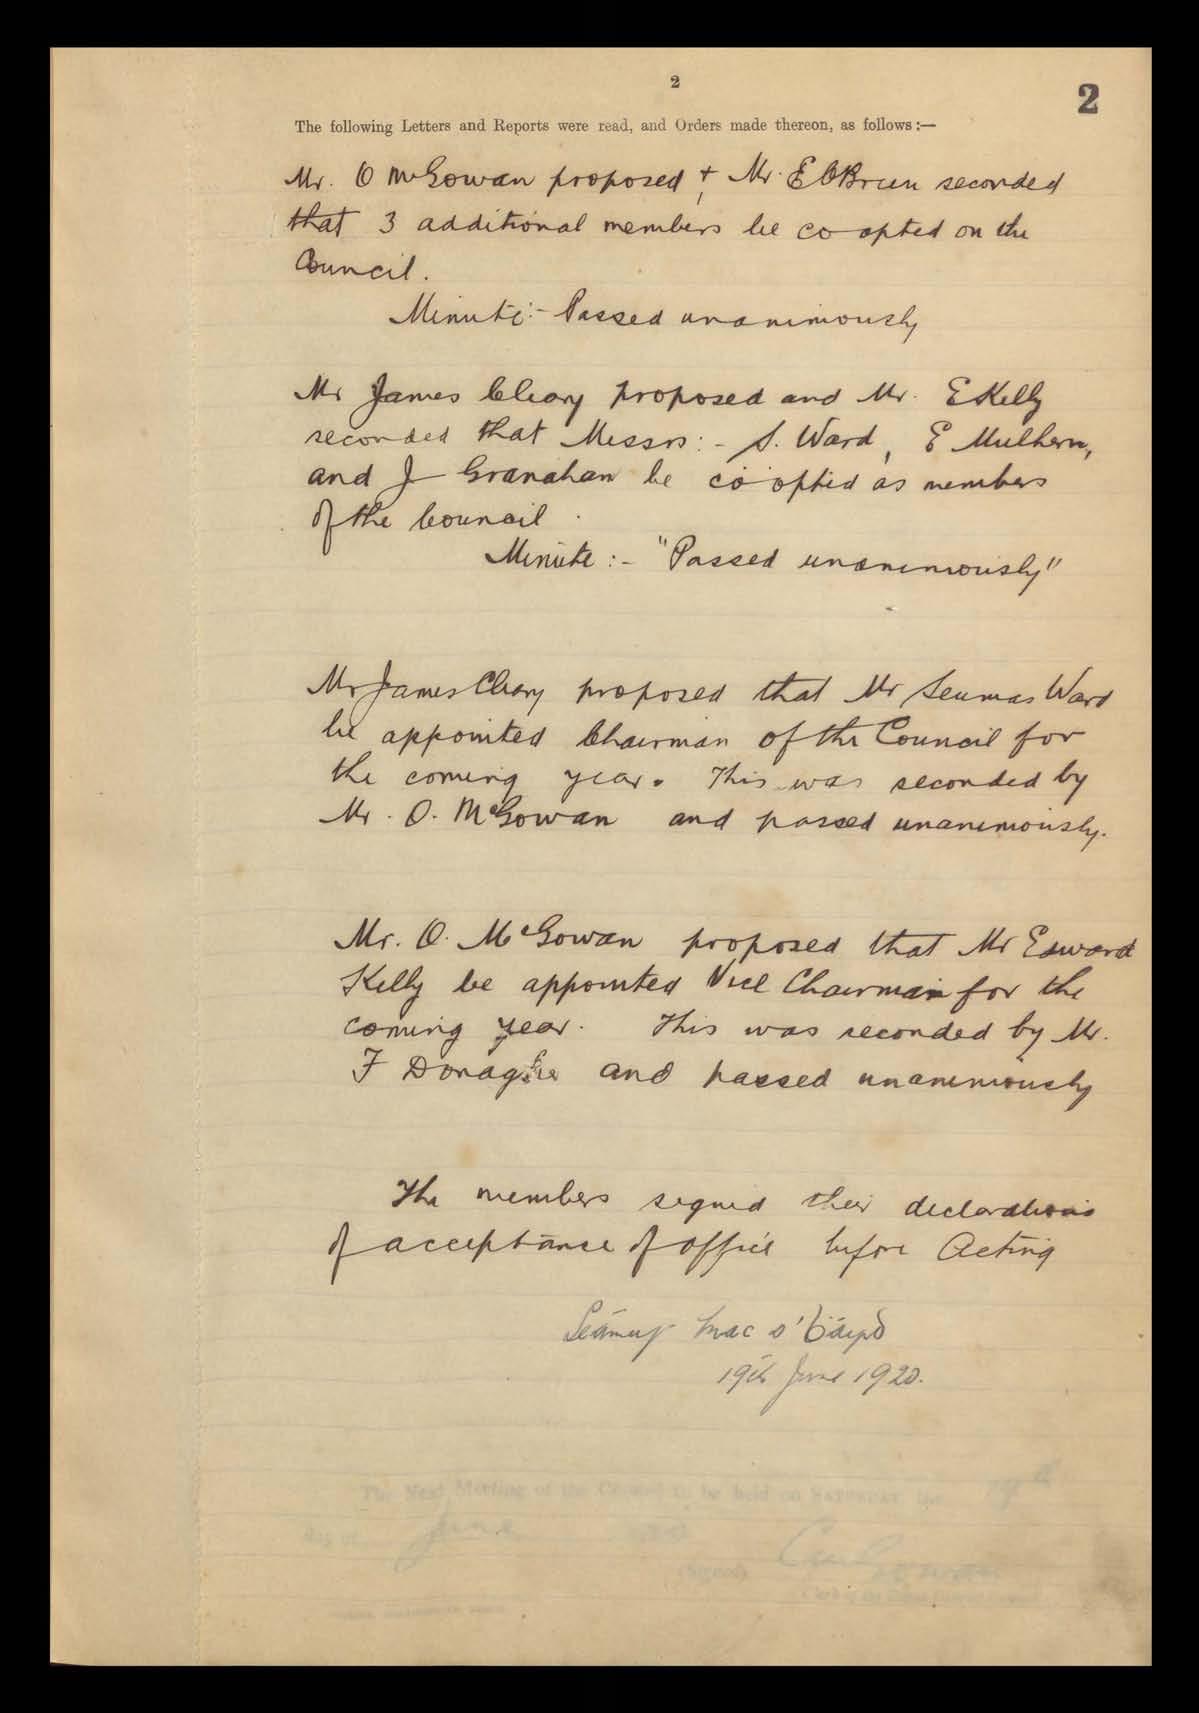 2
2
The following Letters and Reports were read, and Orders made thereon, as follows:—
Mr. O McGowan proposed & Mr. E O'Brien seconded
that 3 additional members be co opted on the
Council.
Minute:- Passed unanimously
Mr James Cleary proposed and Mr. E Kelly
seconded that Messrs:- S. Ward, E Mulhern,
and J Granahan be co opted as members
of the Council.
Minute:- "Passed unanimously"
Mr James Cleary proposed that Mr Seumas Ward
be appointed Chairman of the Council for
the coming year. This was seconded by
Mr. O. McGowan and passed unanimously.
Mr. O. McGowan proposed that Mr Edward
Kelly be appointed Vice Chairman for the
coming year. This was seconded by Mr.
F Donaghe and passed unanimously
The members signed their declarations
of acceptance of office before Acting
Séamus Mac a'
19th June 1920.
The Next Meeting of the Council to be held on SATURDAY the 19th
day of June
(Signed)